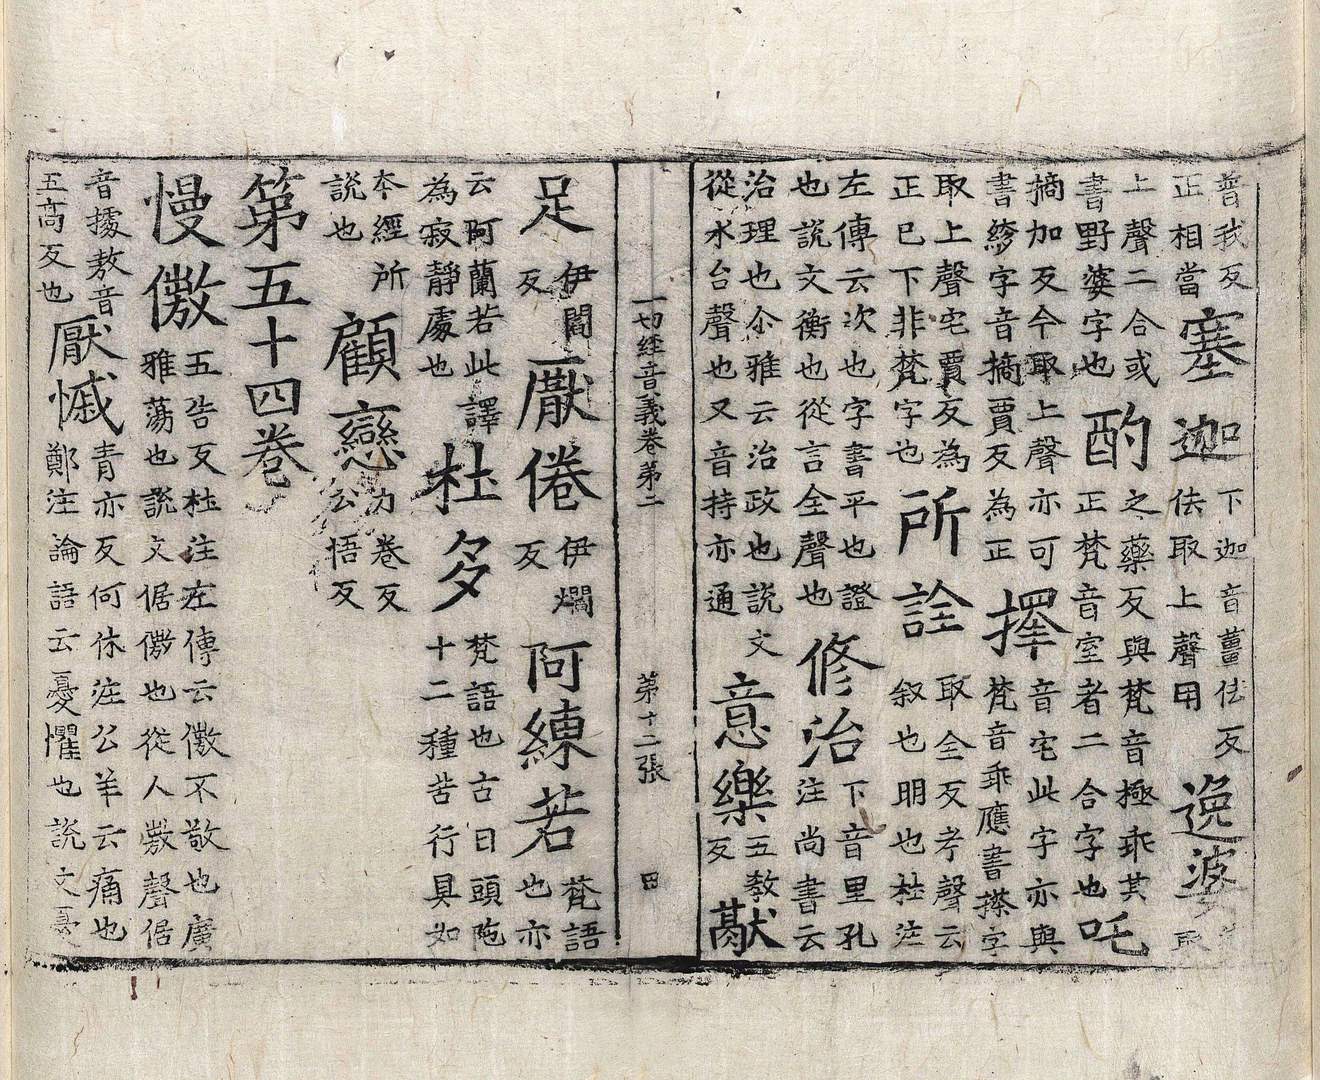 普我反正相當塞迦下迦音薑佉反佉取上聲用逸婆取
上聲二合或書野婆字也酌之藥反與梵音極乖其正梵音室者二合字也吒
摘加反今取上聲亦可書縿字音摘賈反為正擇音宅此字亦與梵音乖應書搽字
取上聲宅賈反為正已下非梵字也所詮取全反考聲云叙也明也杜注
左傳云次也字書平也證也說文衡也從言全聲也修治下音里孔注尚書云
治理也尒雅云治政也說文從水台聲也又音持亦通意樂五教反猒
一切经音義卷第二 第十二張 田
足伊閻反厭倦伊爓反阿練若梵語也亦
云阿蘭若此譯為寂靜處也杜多梵語也古曰頭陁十二種苦行具如
本經所說也顧戀力卷反公悟反
第五十四卷
慢傲五告反杜注左傳云傲不敬也廣雅蕩也説文倨傲也從人敖聲倨
音據敖音五高反也厭慽青亦反何休注公羊云痛也鄭注論語云憂懼也說文憂